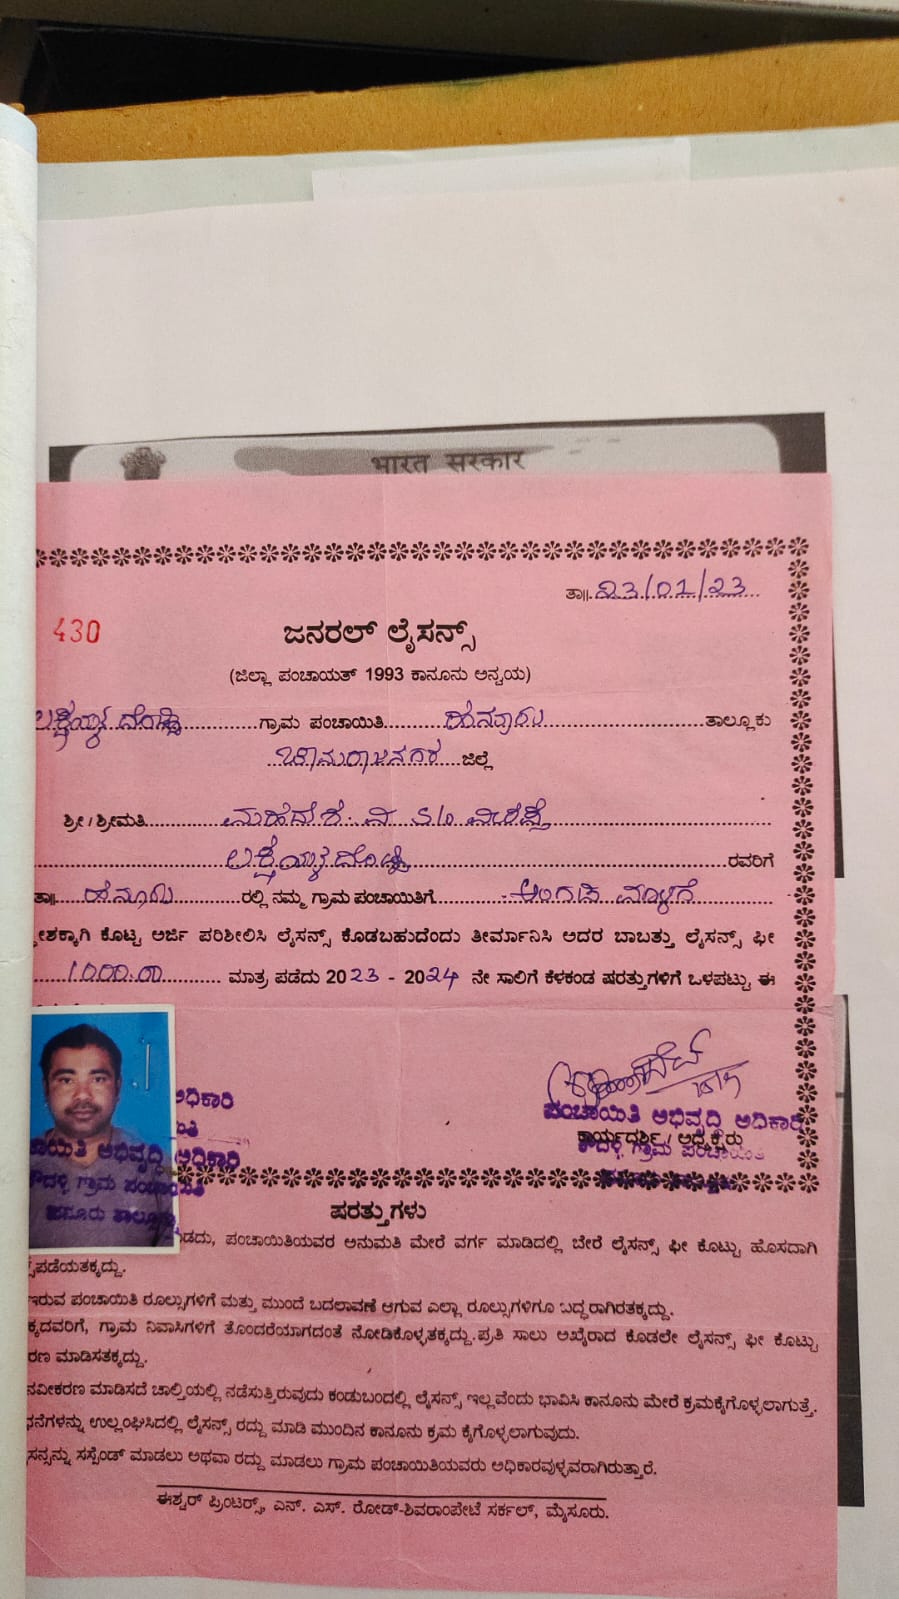 भारत सरकार
ತಾ॥ 23/01/23
430
ಜನರಲ್ ಲೈಸನ್ಸ್
(ಜಿಲ್ಲಾ ಪಂಚಾಯತ್ 1993 ಕಾನೂನು ಅನ್ವಯ)
ಗ್ರಾಮ ಪಂಚಾಯಿತಿ ಹನೂರು ತಾಲ್ಲೂಕು
ಚಾಮರಾಜನಗರ ಜಿಲ್ಲೆ
ಶ್ರೀ/ಶ್ರೀಮತಿ ಮಹದೇಶ. ವಿ S/o
ರವರಿಗೆ
ತಾ॥ ಹನೂರು ರಲ್ಲಿ ನಮ್ಮ ಗ್ರಾಮ ಪಂಚಾಯಿತಿಗೆ ಅಂಗಡಿ ಮಳಿಗೆ
ಕೊಟ್ಟ ಅರ್ಜಿ ಪರಿಶೀಲಿಸಿ ಲೈಸನ್ಸ್ ಕೊಡಬಹುದೆಂದು ತೀರ್ಮಾನಿಸಿ ಅದರ ಬಾಬತ್ತು ಲೈಸನ್ಸ್ ಫೀ
1000.00 ಮಾತ್ರ ಪಡೆದು 2023 - 2024 ನೇ ಸಾಲಿಗೆ ಕೆಳಕಂಡ ಷರತ್ತುಗಳಿಗೆ ಒಳಪಟ್ಟು ಈ
ಅಧಿಕಾರಿ
ಪಂಚಾಯಿತಿ ಅಭಿವೃದ್ಧಿ ಅಧಿಕಾರಿ
ಕಾರ್ಯದರ್ಶಿ / ಅಧ್ಯಕ್ಷರು
ಗ್ರಾಮ ಪಂಚಾಯಿತಿ
ಅಭಿವೃದ್ಧಿ ಅಧಿಕಾರಿ
ಗ್ರಾಮ ಪಂಚಾಯಿತಿ
ಹನೂರು ತಾಲ್ಲೂಕು
ಷರತ್ತುಗಳು
ಪಂಚಾಯಿತಿಯವರ ಅನುಮತಿ ಮೇರೆ ವರ್ಗ ಮಾಡಿದಲ್ಲಿ ಬೇರೆ ಲೈಸನ್ಸ್ ಫೀ ಕೊಟ್ಟು ಹೊಸದಾಗಿ
ಪಡೆಯತಕ್ಕದ್ದು.
ಇರುವ ಪಂಚಾಯಿತಿ ರೂಲ್ಸುಗಳಿಗೆ ಮತ್ತು ಮುಂದೆ ಬದಲಾವಣೆ ಆಗುವ ಎಲ್ಲಾ ರೂಲ್ಸುಗಳಿಗೂ ಬದ್ಧರಾಗಿರತಕ್ಕದ್ದು.
ಕ್ಕದವರಿಗೆ, ಗ್ರಾಮ ನಿವಾಸಿಗಳಿಗೆ ತೊಂದರೆಯಾಗದಂತೆ ನೋಡಿಕೊಳ್ಳತಕ್ಕದ್ದು. ಪ್ರತಿ ಸಾಲು ಅಖೈರಾದ ಕೊಡಲೇ ಲೈಸನ್ಸ್ ಫೀ ಕೊಟ್ಟು
ರಣ ಮಾಡಿಸತಕ್ಕದ್ದು.
ನವೀಕರಣ ಮಾಡಿಸದೆ ಚಾಲ್ತಿಯಲ್ಲಿ ನಡೆಸುತ್ತಿರುವುದು ಕಂಡುಬಂದಲ್ಲಿ ಲೈಸನ್ಸ್ ಇಲ್ಲವೆಂದು ಭಾವಿಸಿ ಕಾನೂನು ಮೇರೆ ಕ್ರಮಕೈಗೊಳ್ಳಲಾಗುತ್ತೆ.
ಧನೆಗಳನ್ನು ಉಲ್ಲಂಘಿಸಿದಲ್ಲಿ ಲೈಸನ್ಸ್ ರದ್ದು ಮಾಡಿ ಮುಂದಿನ ಕಾನೂನು ಕ್ರಮ ಕೈಗೊಳ್ಳಲಾಗುವುದು.
ಸನ್ಸನ್ನು ಸಸ್ಪೆಂಡ್ ಮಾಡಲು ಅಥವಾ ರದ್ದು ಮಾಡಲು ಗ್ರಾಮ ಪಂಚಾಯಿತಿಯವರು ಅಧಿಕಾರವುಳ್ಳವರಾಗಿರುತ್ತಾರೆ.
ಈಶ್ವರ್ ಪ್ರಿಂಟರ್ಸ್, ಎನ್. ಎಸ್. ರೋಡ್-ಶಿವರಾಂಪೇಟೆ ಸರ್ಕಲ್, ಮೈಸೂರು.